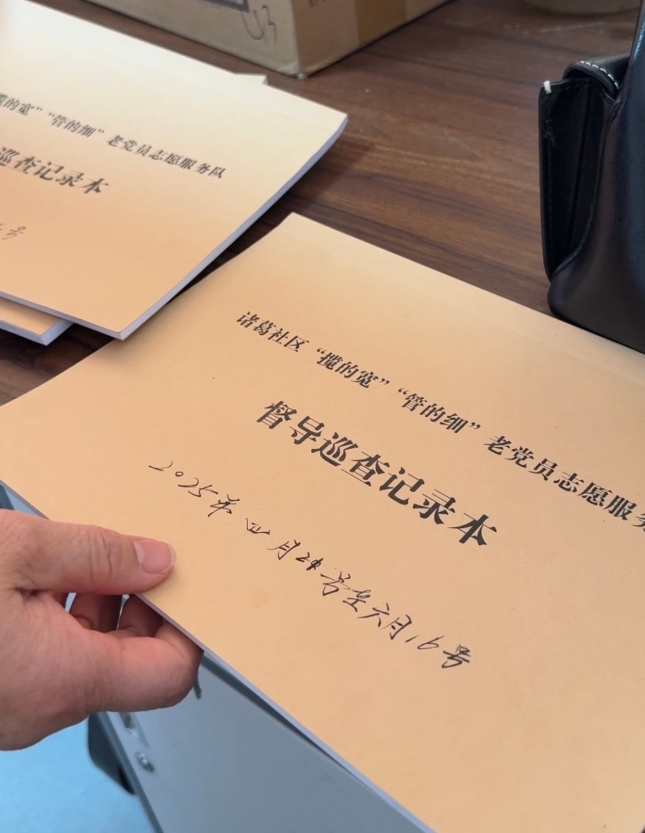 的宽”“管的细”老党员志愿服务队
巡查记录本
号
诸葛社区“揽的宽”“管的细”老党员志愿服务
督导巡查记录本
2025年四月24号至六月16号